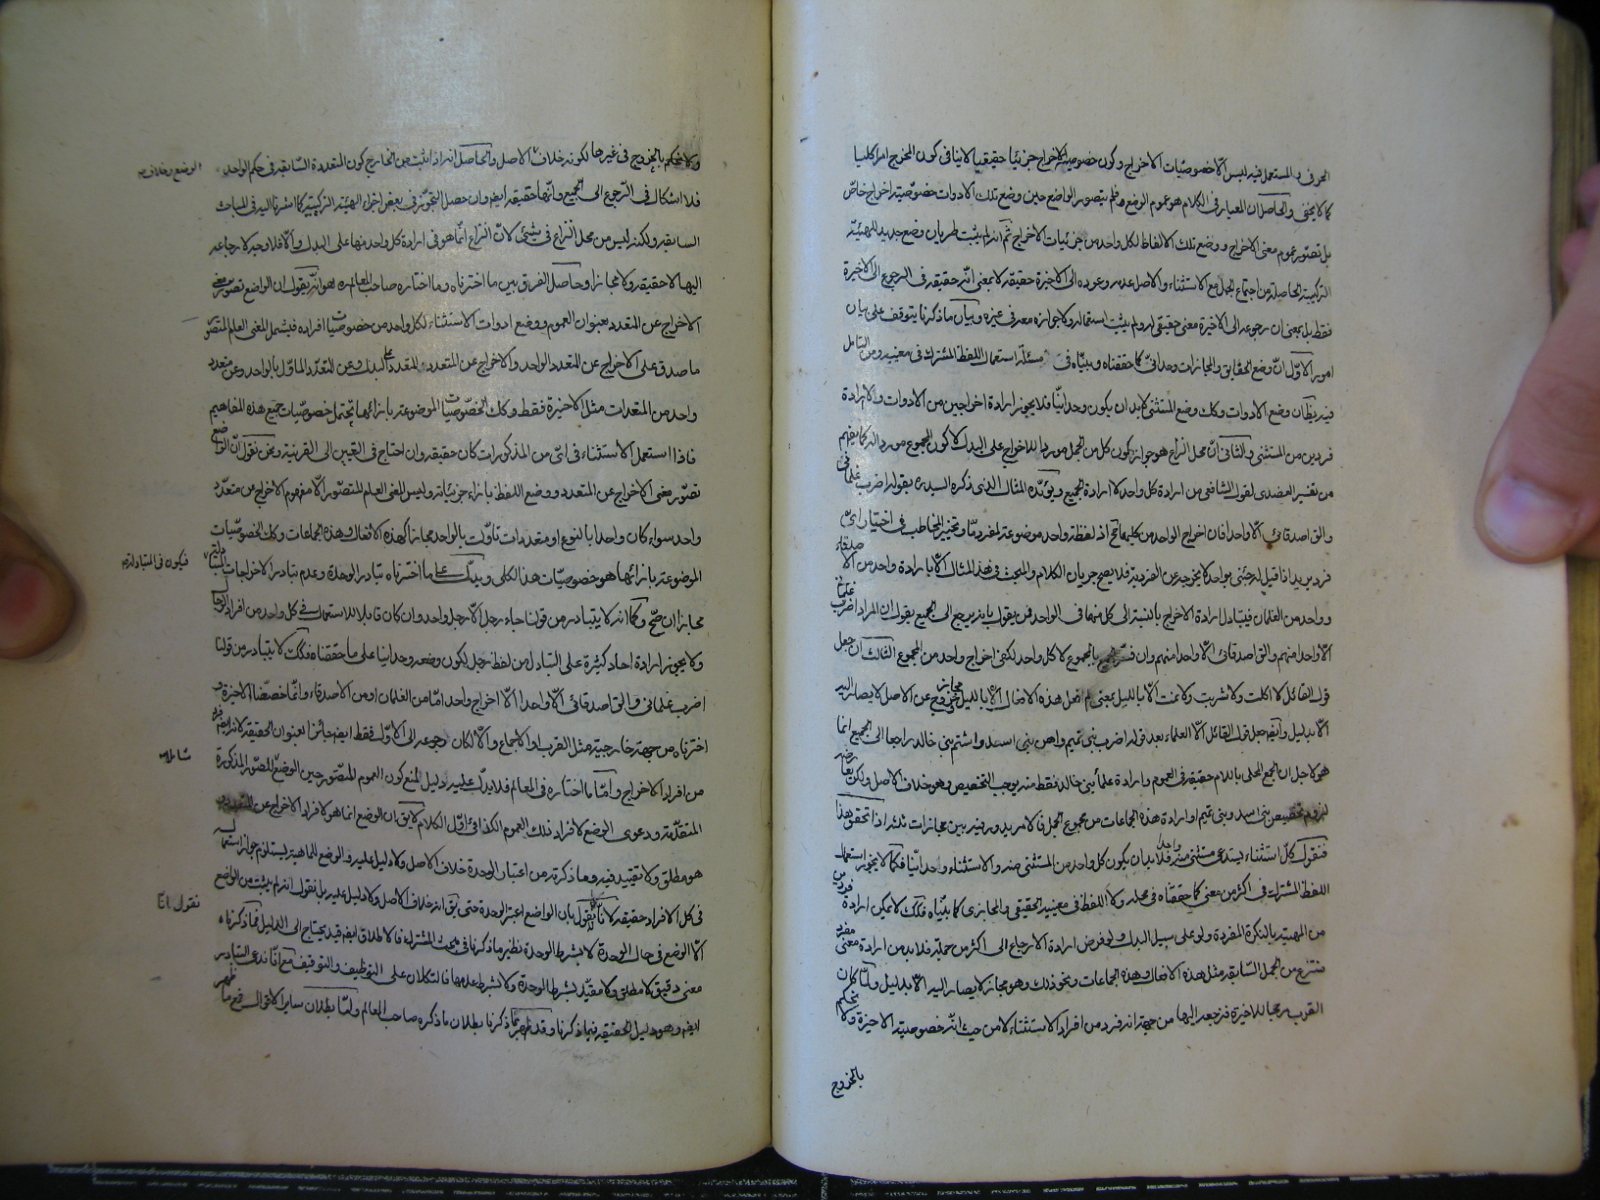 الحرف بل المستعمل فيه ليس الا خصوصيات الاخراج وكون خصوصية الاخراج جزئيا حقيقيا لا ينافى كون المخرج امرا كليا
كما لا يخفى والحاصل ان المعيار فى الكلام هو عموم الوضع فلم يتصور الواضع حين وضع تلك الادوات خصوصية اخراج خاص
بل تصور عموم معنى الاخراج ووضع تلك الالفاظ لكل واحد من جزئيات الاخراج ثم انه لم يثبت طريان وضع جديد للهيئة
التركيبية الحاصلة من اجتماع الجمل مع الاستثناء والاصل عدمه وعوده الى الاخيرة حقيقة لا بمعنى انه حقيقة فى الرجوع الى الاخيرة
فقط بل بمعنى ان رجوعه الى الاخيرة معنى حقيقى له ولم يثبت استعماله ولا جوازه معه فى غيره وبيان ما ذكرنا يتوقف على بيان
امور الاول ان وضع الحقايق والمجازات وحدانى كما حققناه وبيناه فى مسئلة استعمال اللفظ المشترك فى معنييه ومن التامل
فيه يظهر ان وضع الادوات وكك وضع المستثنى لابد ان يكون وحدانيا فلا يجوز ارادة اخراجين من الادوات ولا ارادة
فردين من المستثنى والثانى ان محل النزاع هو جواز كون كل من الجمل موردا للاخراج على البدل لا كون المجموع موردا له كما يفهم
من تفسير العضدى لقول الشافعى من ارادة كل واحد لا ارادة الجميع ويؤيده المثال الذى ذكره السيد ره بقوله اضرب غلمانى
والق اصدقائى الا واحدا فان اخراج الواحد من كليهما مع اذ لفظة واحد موضوعة لمفرد ما وتخيير المخاطب فى اختيار اى
فرد يريد اذا قيل له جئنى بواحد لا يخرجه عن الفردية فلا يصح جريان الكلام والبحث فى هذا المثال الا بارادة واحد من الاصدقاء
وواحد من الغلمان فيتبادل ارادة الاخراج بالنسبة الى كل منهما فى الواحد فمن يقول بانه يرجع الى الجميع يقول ان المراد اضرب غلمانى
الا واحدا منهم والق اصدقائى الا واحدا منهم وان فسر الجميع بالمجموع لا كل واحد لكفى اخراج واحد من المجموع الثالث ان جعل
قول القائل لا اكلت ولا شربت ولا نمت الا بالليل بمعنى لم افعل هذه الافعال الا بالليل مجاز وخروج عن الاصل لا يصار اليه
الا بدليل وايض جعل قول القائل الا العلماء بعد قوله اضرب بنى تميم واهن بنى اسد واشتم بنى خالد راجعا الى الجميع انما
هو لاجل ان الجمع المحلى باللام حقيقة فى العموم وارادة علماء بنى خالد فقط منه يوجب التخصيص وهو خلاف الاصل ولكن يعارضه
لزوم تخصيص بنى اسد وبنى تميم او ارادة هذه الجماعات من مجموع الجمل فالامر يدور فيه بين مجازات ثلثة اذا تحقق هذا
فنقول كل استثناء يستدعى مستثنى منه واحدا فلا بد ان يكون كل واحد من المستثنى منه والاستثناء وحدانيا فكما لا يجوز استعمال
اللفظ المشترك فى اكثر من معنى كما حققناه فى محله ولا اللفظ فى معنييه الحقيقى والمجازى كما بيناه فكك لا يمكن ارادة فردين
من المهية بالنكرة المفردة ولو على سبيل البدل ولو فرض ارادة الارجاع الى اكثر من جملة فلابد من ارادة معنى مفرد
منتزع من الجمل السابقة مثل هذه الافعال وهذه الجماعات ونحو ذلك وهو مجاز لا يصار اليه الا بدليل ولما كان
القرب مرجحا للاخيرة فنرجعه اليها من جهة انه فرد من افراد الاستثناء لا من حيث انه خصوصية الاخيرة ولا نحكم
بالخروج
ولا نحكم بالخروج فى غيرها لكونه خلاف الاصل والحاصل انه اذا ثبت من الخارج كون المتعددة السابقة فى حكم الواحد
فلا اشكال فى الرجوع الى الجميع وانها حقيقة ايض وان حصل التجوز فى بعض اجزاء الهيئة التركيبية كما اشرنا اليه فى المباحث
السابقة ولكنه ليس من محل النزاع فى شئ لان النزاع انما هو فى ارادة كل واحد منها على البدل والا فلا وجه لارجاعه
اليها لا حقيقة ولا مجازا وحاصل الفرق بين ما اخترناه وما اختاره صاحب المعالم ره هو انه يقول ان الواضع تصور معنى
الاخراج عن المتعدد بعنوان العموم ووضع ادوات الاستثناء لكل واحد من خصوصيات افراده فيشمل المعنى العام المتصور
ما صدق على الاخراج عن المتعدد الواحد والاخراج عن المتعدد المتعدد على البدل وعن المتعدد الماول بالواحد وعن متعدد
واحد من المتعددات مثل الاخيرة فقط وكك الخصوصيات الموضوعة بازائها يحتمل خصوصيات جميع هذه المفاهيم
فاذا استعمل الاستثناء فى اى من المذكورات كان حقيقة وان احتاج فى التعيين الى القرينة ونحن نقول ان الواضع
تصور معنى الاخراج عن المتعدد ووضع اللفظ بازاء جزئياته وليس المعنى العام المتصور الا مفهوم الاخراج عن متعدد
واحد سواء كان واحدا بالنوع او متعددات تاولت بالواحد مجازا كهذه الافعال وهذه الجماعات وكك الخصوصيات
الموضوعة بازائها هو خصوصيات هذا الكلى ويدل على ما اخترناه تبادر الوحدة وعدم تبادر الاخراجات المتبادلة
فيكون فى المتبادلة
مجازا ان صح وكما انه لا يتبادر من قولنا جاء رجل الا رجل واحد وان كان قابلا للاستعمال فى كل واحد من افراد الرجال
ولا يجوز ارادة احاد كثيرة على التبادل من لفظ رجل لكون وضعه وحدانيا على ما حققناه فكك لا يتبادر من قولنا
اضرب غلمانى والق اصدقائى الا واحدا الا اخراج واحد اما من الغلمان او من الاصدقاء وانما خصصنا الاخيرة
اخترناه من جهة خارجية مثل القرب او الاجماع والا لكان رجوعه الى الاول فقط ايض جائزا بعنوان الحقيقة لانه ايض فرد
من افراد الاخراج واما ما اختاره فى المعالم فلا يدل عليه دليل المنع كون العموم المتصور حين الوضع للصور المذكورة
شاملا
المتقدمة ودعوى الوضع لافراد ذلك العموم الكذائى اول الكلام لا يق ان الوضع انما هو لافراد الاخراج عن المتعدد
هو مطلق ولا تقييد فيه وما ذكرته من اعتبار الوحدة خلاف الاصل ولا دليل عليه والوضع للماهية يستلزم جواز استعماله
فى كل الافراد حقيقة لانا لا نقول بان الواضع اعتبر الوحدة حتى يق انه خلاف الاصل ولا دليل عليه بل نقول انه لم يثبت من الوضع
نقول انا
الا الوضع فى حال الوحدة لا بشرط الوحدة نظير ما ذكرنا فى مبحث المشترك فالاطلاق ايض قيد يحتاج الى الدليل فما ذكرناه
معنى دقيق لا مطلق ولا مقيد بشرط الوحدة ولا بشرط عدمها فالتكلان على التوظيف والتوقيف مع انا ندعى التبادر
ايض وهو دليل الحقيقة فيما ذكرنا وقد ظهر بما ذكرنا بطلان ما ذكره صاحب المعالم واما بطلان ساير الاقوال فيظهر